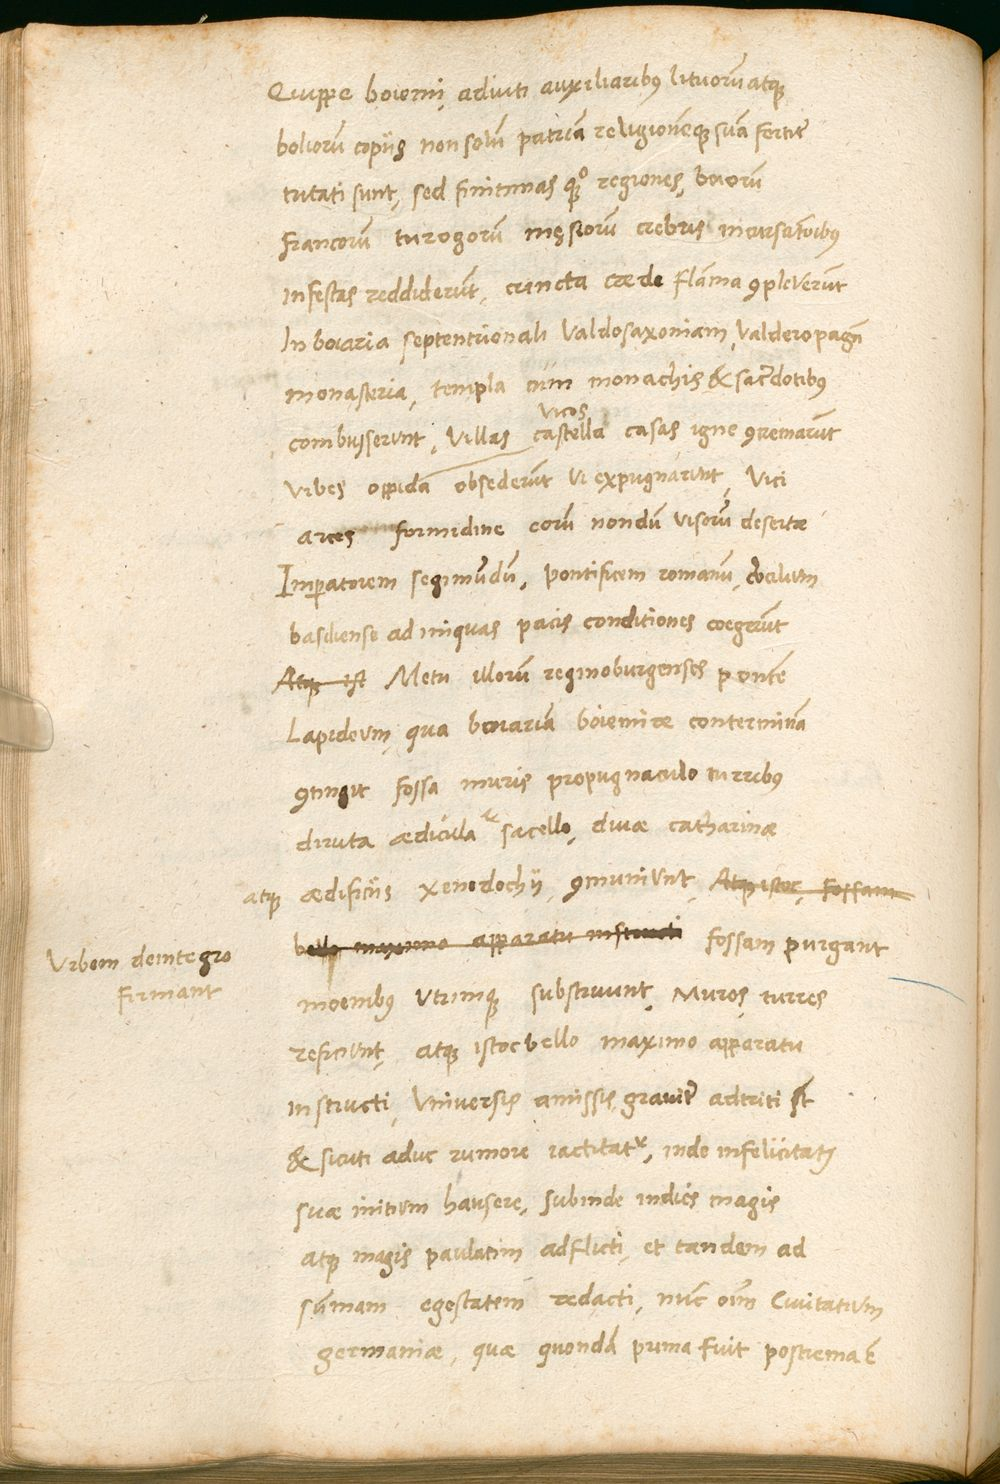 Quippe boiemi, adiuti auxiliaribꝰ lituorū atqꝫ
boliorū copiis non solū patriā religionēqꝫ suā fortiť
tutati sunt, sed finitimas qꝫº regiones, boiorū
francorū turogorū męsiorū crebris incursatōibꝰ
infestas reddiderūt, cuncta cæde flāma ꝯpleverūt
In boiaria septentrionali Valdosaxoniam, Valderopagū
monasteria, templa cum monachis & saćdotibꝰ
combusserunt, villas vicos castella casas igne ꝯcremarūt
urbes oppida obsederūt vi expugnarunt, vici
arces formidine eorū nondū visorū desertæ
Imꝑatorem segimūdū, pontificem romanū, cōcilium
basiliense ad iniquas pacis conditiones coegerūt
Atqꝫ ist Metu illorū reginoburgenses pontē
Lapideum, qua boiariā boiemiæ conterminā
ꝯtingit fossa muris propugnaculo turribꝰ
diruta ædicula & sacello, divæ catharinæ
atqꝫ ædificiis xenodochii, ꝯmuniunt, Atqꝫ istoc, fossam
bello maximo apparatu instructi fossam purgant
Urbem deintegro
firmant
moenibꝰ utrimqꝫ substruunt, Muros, turres
reficiunt, atqꝫ istoc bello maximo apparatu
instructi, Universis amissis, graviť adtriti st̄
& sicuti aduc rumore iactitatᷣ, inde infelicitatis
suæ initium hausere, subinde indies magis
atqꝫ magis paulatim adflicti, et tandem ad
sūmam egestatem redacti, nūc oīm Civitatium
germaniæ, quæ quondā prima fuit postrema ē